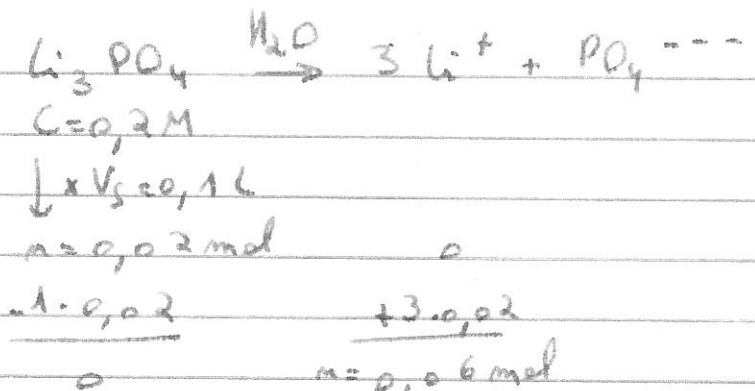 Li₃PO₄ H₂O→ 3 Li⁺ + PO₄⁻⁻⁻
C=0,2M
↓ × Vₛ=0,1L
n=0,02 mol 0
-1·0,02 +3·0,02
0 n=0,06 mol